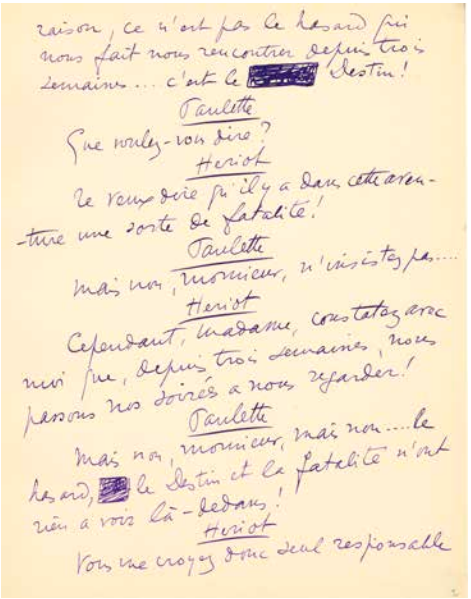 raison, ce n'est pas le hasard qui
nous fait nous rencontrer depuis trois
semaines.... c'est le Destin!
Paulette
Que voulez-vous dire?
Heriot
Je veux dire qu'il y a dans cette aven-
-ture une sorte de fatalité!
Paulette
Mais non, monsieur, n'insistez pas....
Heriot
Cependant, madame, constatez avec
moi que, depuis trois semaines, nous
passons nos soirées a nous regarder!
Paulette
Mais non, monsieur, mais non....le
hasard, le Destin et la fatalité n'ont
rien a voir là-dedans!
Heriot
Vous me croyez donc seul responsable